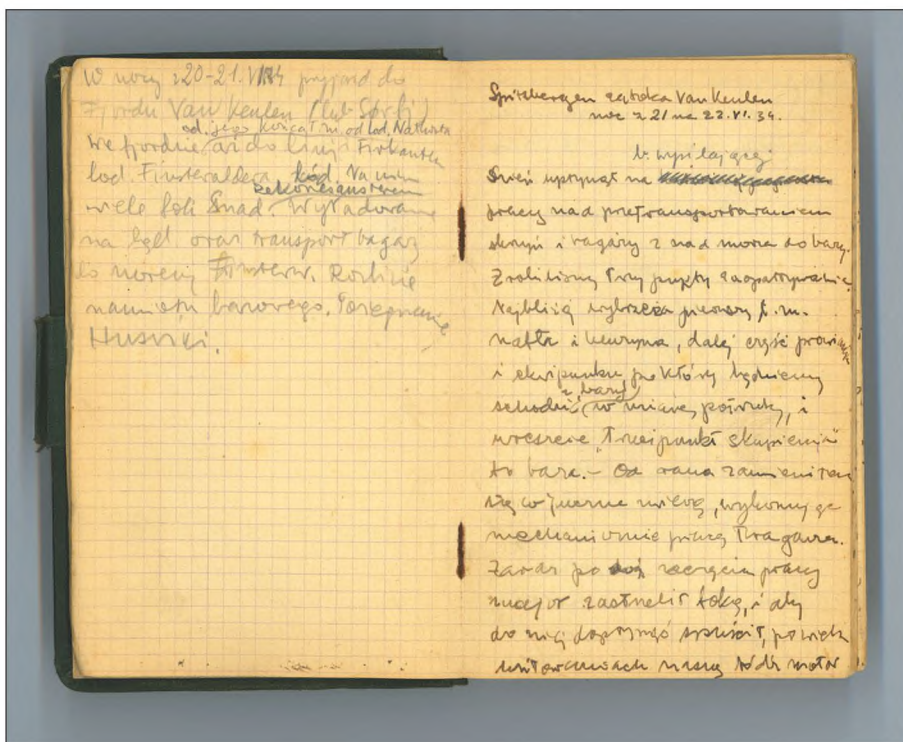 W nocy z 20-21.VI.34 przyjazd do
Fjordu Van Keulen (lub Sør-fj.)
od jego końca t.m. od lod. Nathorsta
We fjordzie aż do linji Firkanten
lod. Finsterwaldera lód. Na nim
wiele fok Snad. Wyładowanie
na ląd oraz transport bagaży
do moreny Finsterw. Rozbicie
namiotu bazowego. Pożegnanie
Husviki.
Spitzbergen zatoka Van Keulen
noc z 21 na 22.VI.34.
b. wysilającej
Dzień upłynął na
pracy nad przetransportowaniem
skrzyń i bagaży z nad morza do bazy.
Zrobiliśmy trzy punkty zaopatrzenia.
Najbliżej wybrzeża pierwszy t.m.
nafta i benzyna, dalej część prowiantu
i ekwipunku po który będziemy
z bazy
schodzić w miarę potrzeby, i
wreszcie "trzeci punkt skupienia"
to baza. – Od rana zamieniłem
się w juczne zwierzę, wykonując
mechanicznie pracę tragarza.
Zaraz po zaczęciu pracy
major zastrzelił fokę, i aby
do niej dopłynąć spuścił, po wielu
usiłowaniach naszą łódź motor